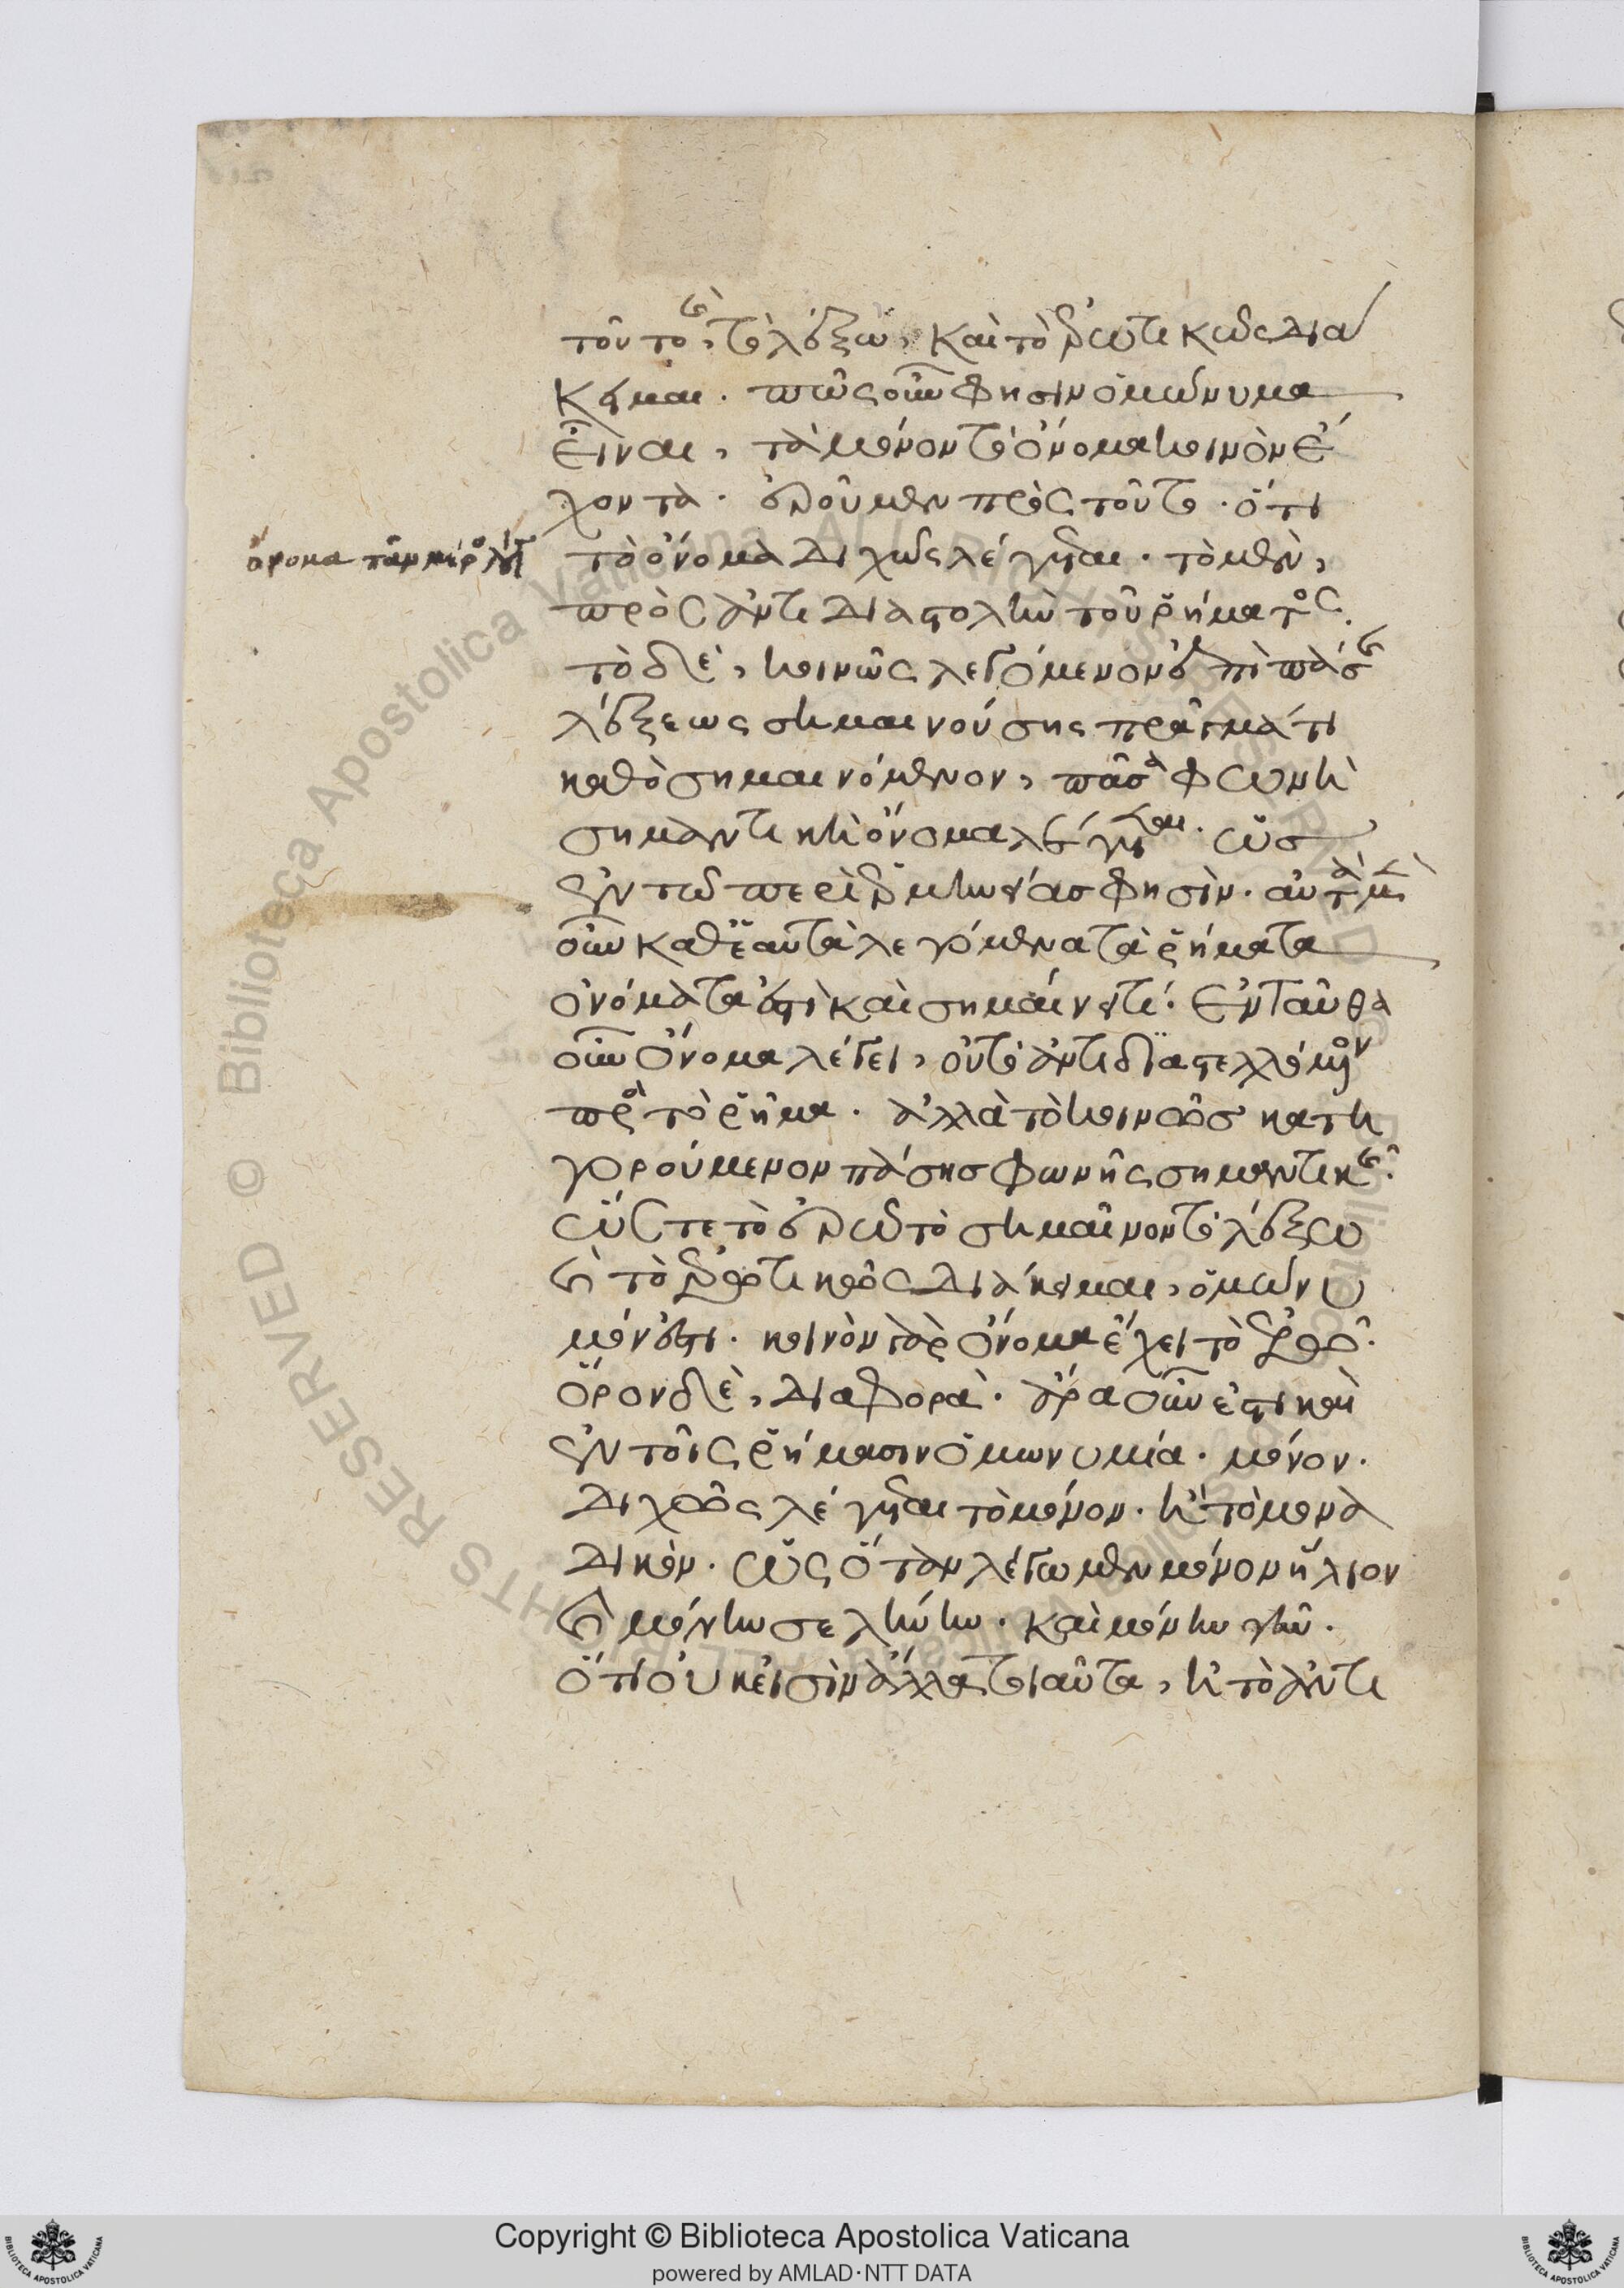 τοῦτο καὶ, τὸ λέξω, καὶ τὸ ἐρωτικῶς διά
κειμαι. πῶς οὖν φησιν ὁμώνυμα
εἶναι, τὰ μόνον τὸ ὄνομα κοινὸν ἔ
χοντα. ἐροῦμεν πρὸς τοῦτο. ὅτι
ὄνομα πᾶν μέρος λόγου
τὸ ὄνομα διχῶς λέγεται. τὸ μὲν,
πρὸς ἀντιδιαστολὴν τοῦ ῥήματος.
τὸ δὲ, κοινῶς λεγόμενον ἐπὶ πάσης
λέξεως σημαινούσης πρᾶγμά τι
καθὸ σημαινόμενον, πᾶσα φωνὴ
σημαντικὴ ὄνομα λέγεται. ὡς
ἐν τῷ περὶ ἑρμηνείας φησίν. αὐτὰ μὲν
οὖν καθ' ἑαυτὰ λεγόμενα τὰ ῥήματα
ὀνόματα ἐστὶ καὶ σημαίνει τί. ἐνταῦθα
οὖν ὄνομα λέγει, οὐ τὸ ἀντιδιαστελλόμενον
πρὸς τὸ ῥῆμα. ἀλλὰ τὸ κοινῶς κατη
γορούμενον πάσης φωνῆς σημαντικῆς.
ὥστε τὸ ἐρῶ τὸ σημαῖνον τὸ λέξω
καὶ τὸ ἐρωτικῶς διάκειμαι, ὁμώνυ
μόν ἐστι. κοινὸν γὰρ ὄνομα ἔχει τὸ ἐρῶ.
ὅρον δὲ, διάφορα. ἄρα οὖν ἐστι καὶ
ἐν τοῖς ῥήμασιν ὁμωνυμία. μόνον.
διχῶς λέγεται τὸ μόνον. ἢ τὸ μονα
δικόν. ὡς ὅταν λέγωμεν μόνον ἥλιον
καὶ μόνην σελήνην. καὶ μόνην γῆν.
ὅτι οὐκ εἰσὶν ἄλλα τοιαῦτα, ἢ τὸ ἀντι
Copyright © Biblioteca Apostolica Vaticana
powered by AMLAD·NTT DATA